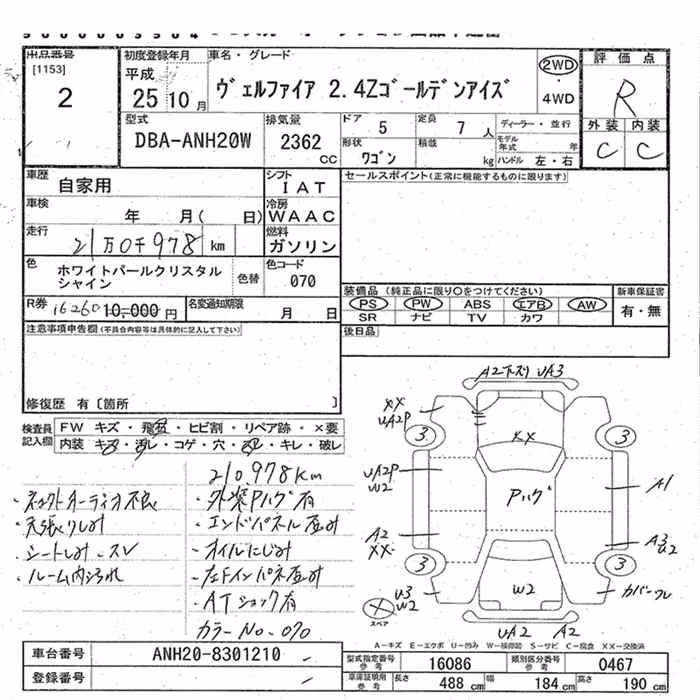 出品番号
[1153]
2
初度登録年月
平成
25 10月
車名・グレード
ヴェルファイア 2.4Zゴールデンアイズ
2WD
4WD
評価点
R
外装 内装
C C
型式
DBA-ANH20W
排気量
2362
CC
ドア 5
定員 7 人
形状 ワゴン
積載 kg
ディーラー・並行
モデル年式 年
ハンドル 左・右
車歴
自家用
シフト
IAT
車検
年 月( 日)
冷房
WAAC
走行
21万0千978 km
燃料
ガソリン
色
ホワイトパールクリスタル
シャイン
色替
色コード
070
R券 16260 10,000円
名変通知期限
月 日
セールスポイント(正常に機能するものに限ります)
装備品(純正品に限り○をつけてください)
新車保証書
PS PW ABS エアB AW
有・無
SR ナビ TV カワ
後日品
注意事項申告欄(不具合内容等は具体的に記入して下さい)
修復歴 有〔箇所 〕
検査員
記入欄
FW キズ・飛石・ヒビ割・リペア跡・×要
内装 キズ・汚レ・コゲ・穴・スレ・キレ・破レ
210,978km
・外装Pハゲ有
・天張りしみ
・エンドパネル歪み
・シートしみ・スレ
・オイルにじみ
・ルーム内汚れ
・ATショック有
カラーNo.070
A2下ズリ UA3
XX
UA2P
3
3
XX
UA2P
W2
Pハゲ
A1
A2
XX
A3
U2
3
3
U3
W2
W2
カバーワレ
X
スペア
UA2 A2
A−キズ E−エクボ U−凹み W−補修跡 S−サビ C−腐食 XX−交換済
車台番号
ANH20-8301210
登録番号
型式指定番号
参考
16086
類別区分番号
参考
0467
車庫証明用
参考
長さ 488 cm
幅 184 cm
高さ 190 cm